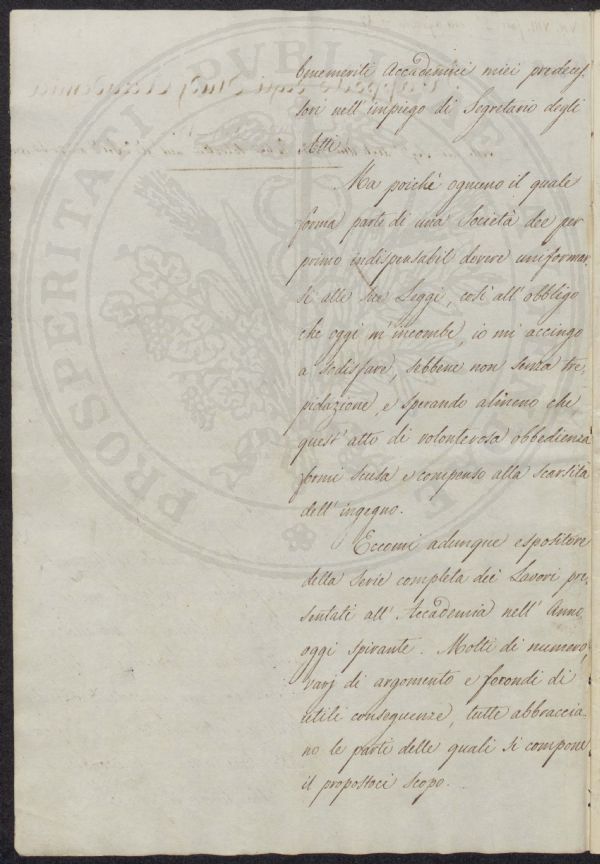 benemeriti Accademici miei predeces-
sori nell' impiego di Segretario degli
Atti.
Ma poichè ognuno il quale
forma parte di una Società dee per
primo indispensabil dovere uniformar-
si alle sue Leggi, così all' obbligo
che oggi m' incombe, io mi accingo
a sodisfare, sebbene non senza tre-
pidazione, e sperando almeno che
quest' atto di volonterosa obbedienza
formi scusa e compenso alla scarsità
dell' ingegno.
Eccomi adunque espositore
della serie completa dei Lavori pre-
sentati all' Accademia nell' Anno
oggi spirante. Molti di numero,
varj di argomento e fecondi di
utili conseguenze, tutte abbraccia-
no le parti delle quali si compone
il propostoci scopo.
PROSPERITATI PVBLICAE